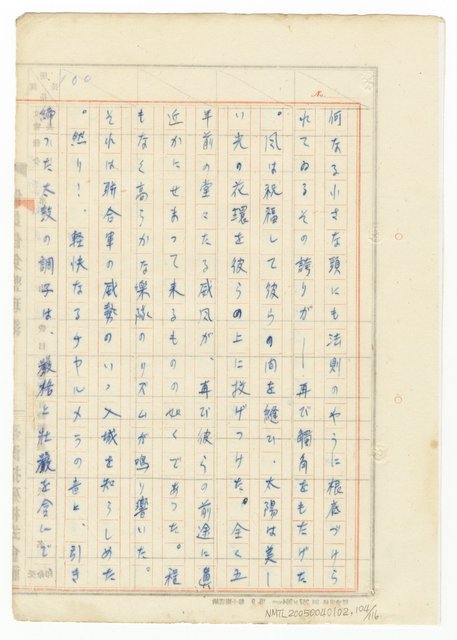 100
No.
何なる小さな頭にも法則のやうに根底づけら
れてゐるその誇りが——再び觸角をもたげた
。風は祝福して彼らの間を縫ひ、太陽は美し
い光の花環を彼らの上に投げつけた。全く五
年前の堂々たる威風が、再び彼らの前途に真
近かにせまつて来るものの如くであつた。程
もなく高らかな樂隊のリズムが鳴り響いた。
それは聯合軍の威勢のいゝ入城を知らしめた
。然り!軽快なるチヤルメラの音と、引き
締つた太鼓の調子は、嚴格と壯嚴を含んで
NMTL20050040102, 104/116